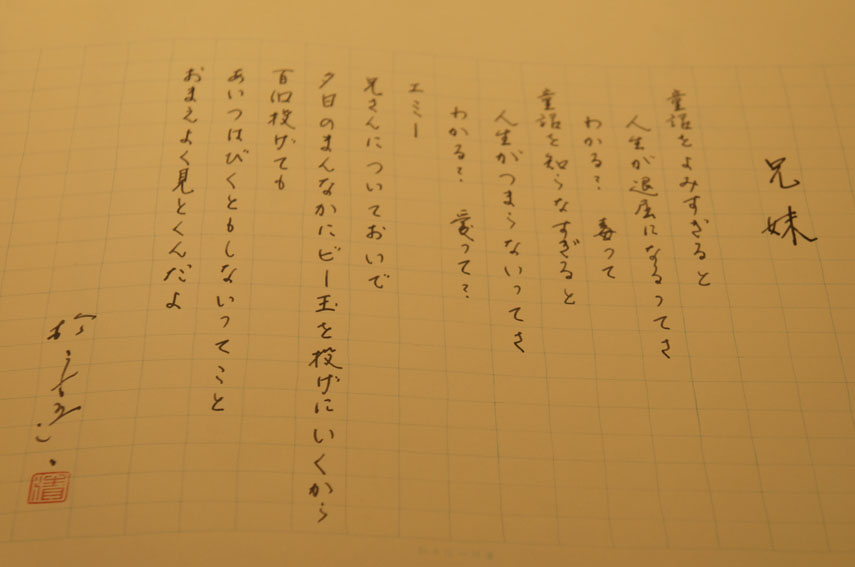 兄妹
童話をよみすぎると
人生が退屈になるってさ
わかる? 毒って
童話を知らなすぎると
人生がつまらないってさ
わかる? 愛って?
エミー
兄さんについておいで
夕日のまんなかにビー玉を投げにいくから
百回投げても
あいつはびくともしないってこと
おまえよく見とくんだよ